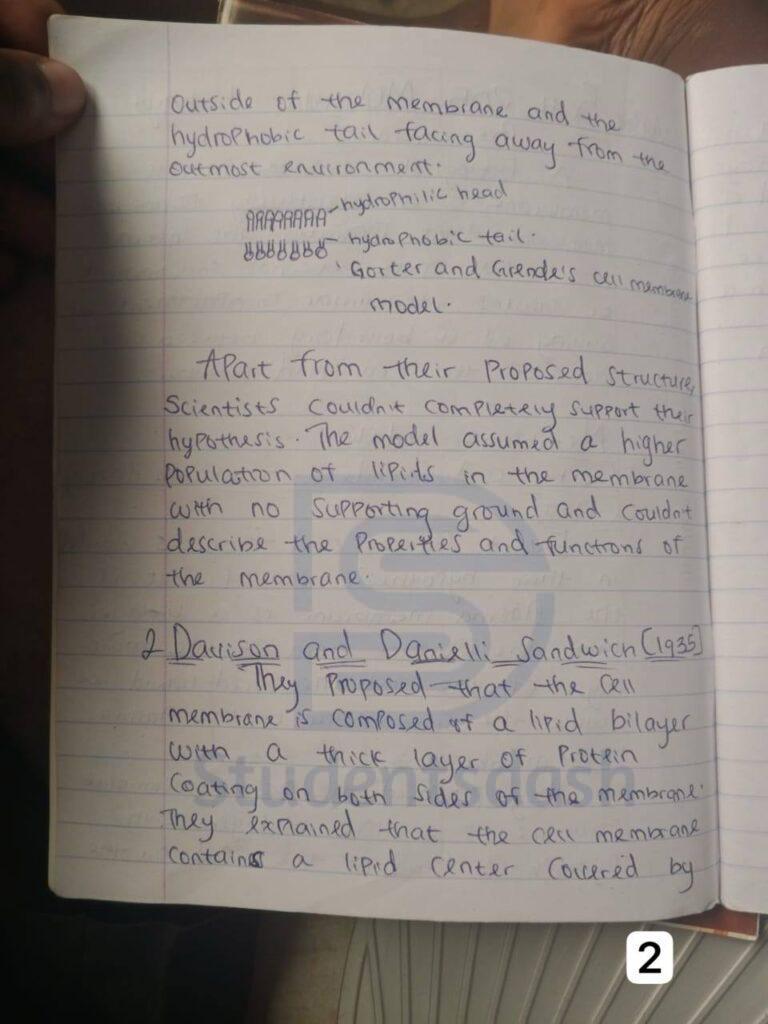 Outside of the membrane and the
hydrophobic tail facing away from the
outmost environment.
hydrophilic head
hydrophobic tail.
Gorter and Grendel's cell membrane
model.
Apart from their proposed structure,
Scientists couldn't completely support their
hypothesis. The model assumed a higher
population of lipids in the membrane
with no supporting ground and couldn't
describe the properties and functions of
the membrane.
2 Davison and Danielli Sandwich (1935)
They proposed that the cell
membrane is composed of a lipid bilayer
with a thick layer of protein
coating on both sides of the membrane.
They explained that the cell membrane
contains a lipid center covered by
Studentsdash
2